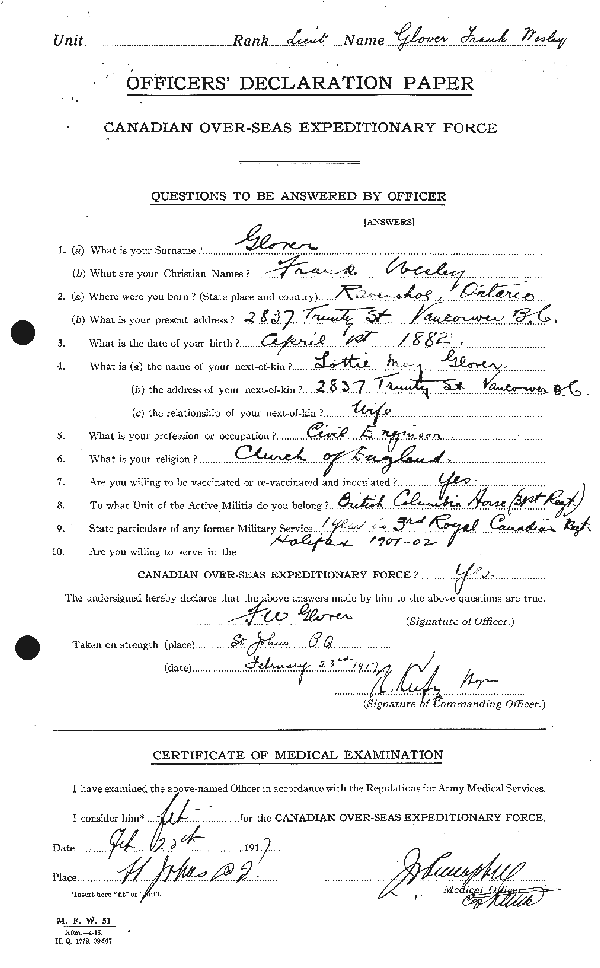 Unit Rank Lieut Name Glover Frank Wesley
OFFICERS' DECLARATION PAPER
CANADIAN OVER-SEAS EXPEDITIONARY FORCE
QUESTIONS TO BE ANSWERED BY OFFICER
[ANSWERS]
1. (a) What is your Surname? Glover
(b) What are your Christian Names? Frank Wesley
2. (a) Where were you born? (State place and country) Ravenshoe, Ontario
(b) What is your present address? 2837 Trinity St Vancouver B.C.
3. What is the date of your birth? April 1st 1882
4. What is (a) the name of your next-of-kin? Lottie May Glover
(b) the address of your next-of-kin? 2837 Trinity St Vancouver B.C.
(c) the relationship of your next-of-kin? Wife
5. What is your profession or occupation? Civil Engineer
6. What is your religion? Church of England.
7. Are you willing to be vaccinated or re-vaccinated and inoculated? Yes
8. To what Unit of the Active Militia do you belong? British Columbia Horse (31st Regt)
9. State particulars of any former Military Service 1 Year in 3rd Royal Canadian Regt
Halifax 1901-02
10. Are you willing to serve in the
CANADIAN OVER-SEAS EXPEDITIONARY FORCE? Yes.
The undersigned hereby declares that the above answers made by him to the above questions are true.
F W Glover (Signature of Officer.)
Taken on strength (place) St Johns P Q
(date) February 23rd 1917
(Signature of Commanding Officer.)
CERTIFICATE OF MEDICAL EXAMINATION
I have examined the above-named Officer in accordance with the Regulations for Army Medical Services.
I consider him* fit for the CANADIAN OVER-SEAS EXPEDITIONARY FORCE.
Date Feb 1917
Place St Johns P Q
Medical Officer
*Insert here "fit" or
M. F. W. 51